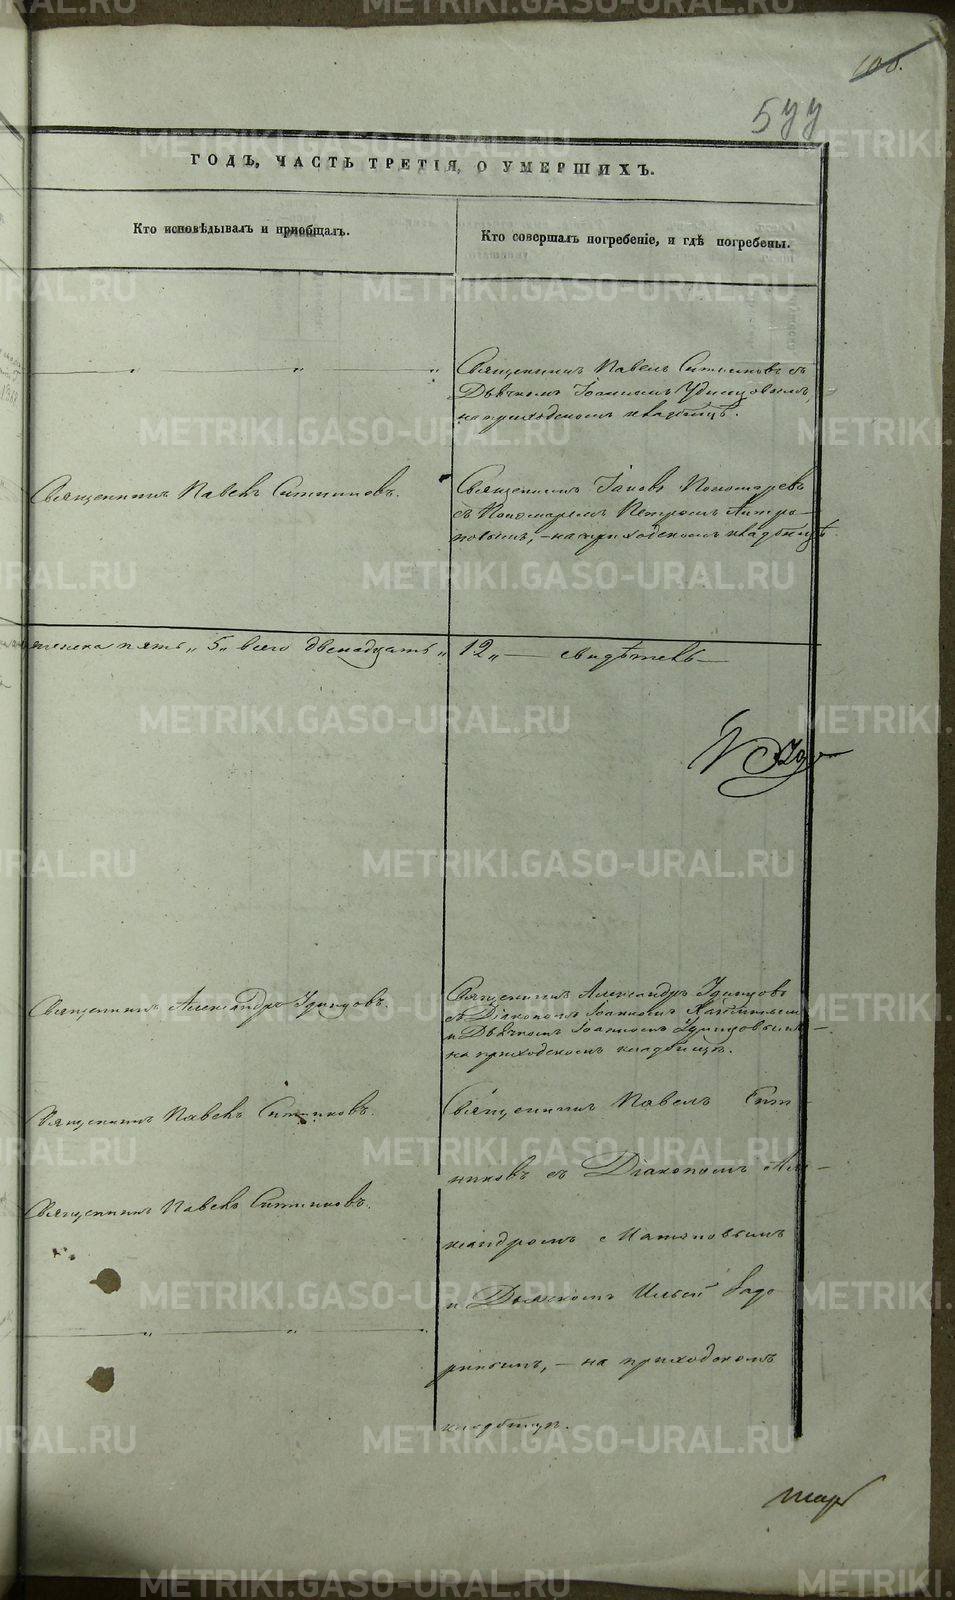 108.
577
ГОДЪ, ЧАСТЬ ТРЕТІЯ, О УМЕРШИХЪ.
Кто исповѣдывалъ и пріобщалъ.
Кто совершалъ погребеніе, и гдѣ погребены.
Священникъ Павелъ Ситниковъ съ
Дьячкомъ Іоанномъ Удинцовымъ,
на приходскомъ кладбищѣ.
Священникъ Павелъ Ситниковъ.
Священникъ Іаковъ Пономаревъ
съ Пономаремъ Петромъ Антро-
повымъ, - на приходскомъ кладбищѣ.
женска пять „5„ всего двенадцать „ 12 „ — свидѣтель —
Священникъ Александръ Удинцовъ.
Священникъ Александръ Удинцовъ
съ Діакономъ Іоанномъ
и Дьячкомъ Іоанномъ Удинцовымъ -
на приходскомъ кладбищѣ.
Священникъ Павелъ Ситниковъ.
Священникъ Павелъ Сит-
никовъ съ Діакономъ Але-
Священникъ Павелъ Ситниковъ.
ксандромъ
и Дьячкомъ Ильей
- на приходскомъ
кладбищѣ.
METRIKI.GASO-URAL.RU